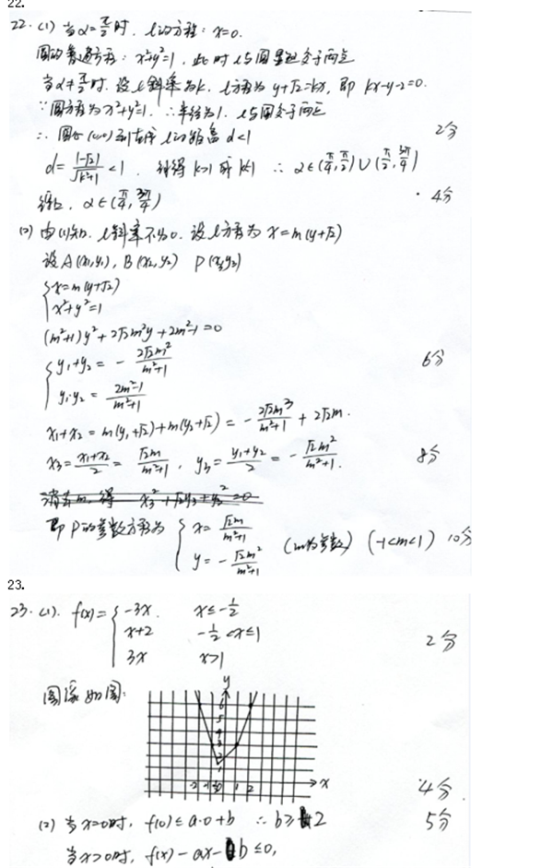 22.
22. (1) 当α=π/2时, l的方程: x=0.
圆的普通方程: x²+y²=1, 此时l与圆显然交于两点
当α≠π/2时, 设l斜率为k, l方程为y+√2=kx, 即 kx-y-√2=0.
∵圆方程为x²+y²=1. ∴半径为1. l与圆交于两点
∴ 圆心(0,0)到直线l的距离 d<1 2分
d=|-√2|/√(k²+1) <1. 解得k>1或k<-1 ∴ α∈(π/4,π/2)∪(π/2,3π/4)
综上, α∈(π/4,3π/4) 4分
(2) 由(1)知, l斜率不为0. 设l方程为 x=m(y+√2)
设A(x₁,y₁), B(x₂,y₂) P(x₃,y₃)
{x=m(y+√2)
x²+y²=1
(m²+1)y²+2√2m²y+2m²-1=0
{y₁+y₂=-2√2m²/(m²+1) 6分
y₁·y₂=(2m²-1)/(m²+1)
x₁+x₂=m(y₁+√2)+m(y₂+√2)=-2√2m³/(m²+1)+2√2m.
x₃=(x₁+x₂)/2=√2m/(m²+1), y₃=(y₁+y₂)/2=-√2m²/(m²+1). 8分
消去m, 得 x₃²+√2y₃+y₃²=0
即P的参数方程为 {x=√2m/(m²+1)
y=-√2m²/(m²+1) (m为参数) (-1<m<1) 10分
23.
23. (1). f(x)={-3x. x≤-1/2
x+2 -1/2<x≤1 2分
3x x>1
图像如图:
y
6
5
4
3
2
1
-2 -1 0 1 2 x
4分
(2) 当x=0时, f(0)≤a·0+b ∴b≥2 5分
当x>0时, f(x)-ax-b≤0,